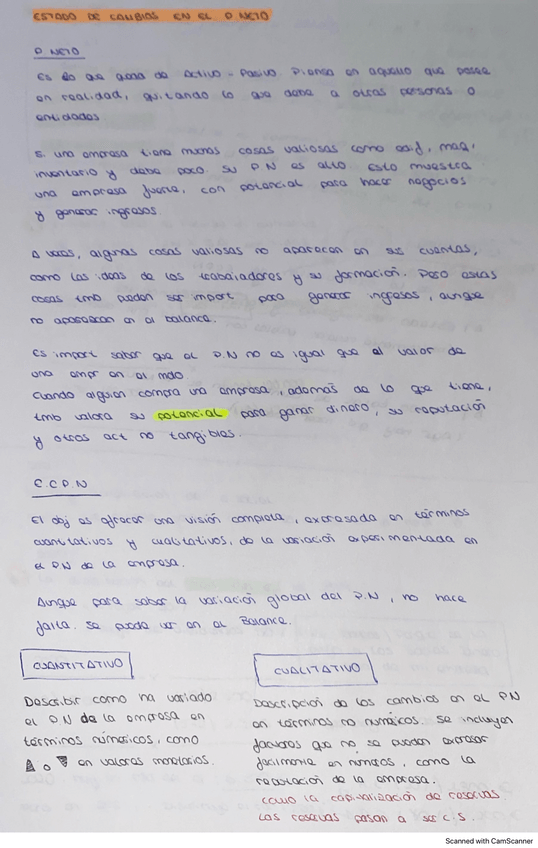 ESTADO DE CAMBIOS EN EL P. NETO
P. NETO
Es lo que queda de Activo - Pasivo. Piensa en aquello que posee
en realidad, quitando lo que debe a otras personas o
entidades.
Si una empresa tiene muchas cosas valiosas como edif, maq,
inventario y debe poco. Su PN es alto. Esto muestra
una empresa fuerte, con potencial para hacer negocios
y generar ingresos.
A veces, algunas cosas valiosas no aparecen en sus cuentas,
como las ideas de los trabajadores y su formación. Pero estas
cosas tmb pueden ser import para generar ingresos, aunque
no aparezcan en el balance.
Es import saber que el P.N no es igual que el valor de
una empr en el mdo.
Cuando alguien compra una empresa, además de lo que tiene,
tmb valora su potencial para ganar dinero, su reputación
y otros act no tangibles.
C.C.P.N
El obj es ofrecer una visión completa, expresada en términos
cuantitativos y cualitativos, de la variación experimentada en
el PN de la empresa.
Aunque para saber la variación global del P.N, no hace
falta. Se puede ver en el Balance.
CUANTITATIVO
Describir como ha variado
el PN de la empresa en
términos númericos, como
▲ o ▼ en valores monetarios.
CUALITATIVO
Descripción de los cambios en el PN
en términos no numéricos. Se incluyen
factores que no se pueden expresar
facilmente en números, como la
reputación de la empresa.
como la capitalización de reservas.
Las reservas pasan a ser C.S.
Scanned with CamScanner